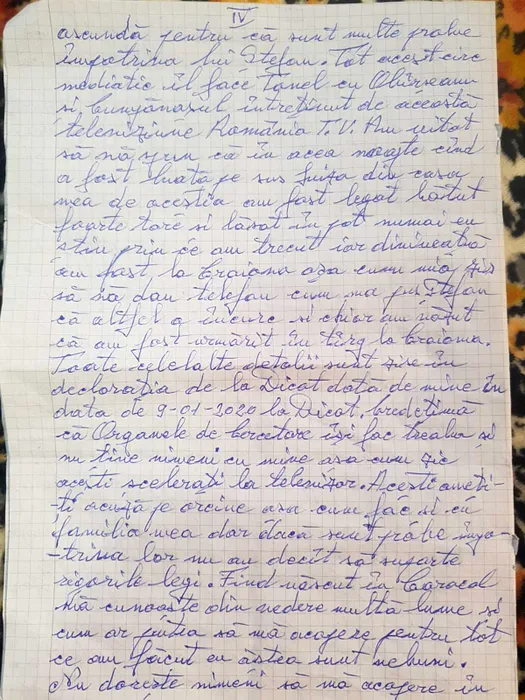 IV
ascundă pentru că sunt multe probe
împotriva lui Ștefan. Tot acest circ
mediatic îl face Tanel cu
și bungănașul întreținut de această
televiziune România T.V. Am uitat
să vă spun că în acea noapte cînd
a fost luată pe sus din casa
mea de aceștia am fost legat bătut
foarte tare și lăsat în pat numai eu
știu prin ce am trecut iar dimineață
am fost la Craiova așa cum mia zis
să vă dau telefon cum ma pus Ștefan
că altfel o încurc și chiar am văzut
că am fost urmărit în tîrg la Craiova.
Toate celelalte detalii sunt zise în
declarația de la Diicot dată de mine în
data de 9-01-2020 la Diicot. Credețimă
că Organele de Cercetare își fac treaba și
nu ține nimeni cu mine așa cum zic
acești scelerați la televizor. Acești ameți-
-ți acuză pe oricine așa cum fac și cu
familia mea dar dacă sunt probe împo-
-triva lor nu au decît să suporte
rigorile legi. Fiind născut în Caracal
mă cunoaște din vedere multă lume și
cum ar putea să mă acopere pentru tot
ce am făcut eu ăștea sunt nebuni.
Nu dorește nimeni să mă acopere în